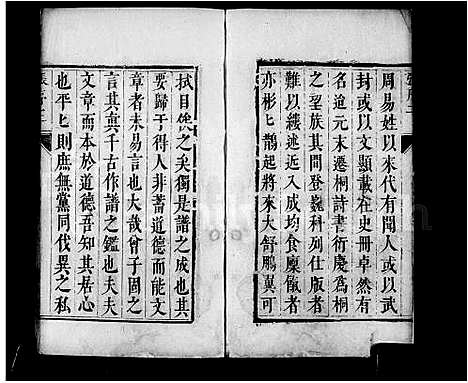 周易姓以來代有聞人或以武
封或以文顯載在史冊卓然有
名迨元末遷桐詩書衍慶爲桐
之望族其間登巍科列仕版者
難以縷述近入成均食廩餼者
亦彬匕鵲起將來大舒鵬翼可
拭目俟之矣獨是譜之成也其
要歸于得人非蓄道德而能文
章者未易言也大哉曾子固之
言其真千古作譜之鑑也夫夫
文章而本於道德吾知其居心
也平匕則庶無黨同伐異之私